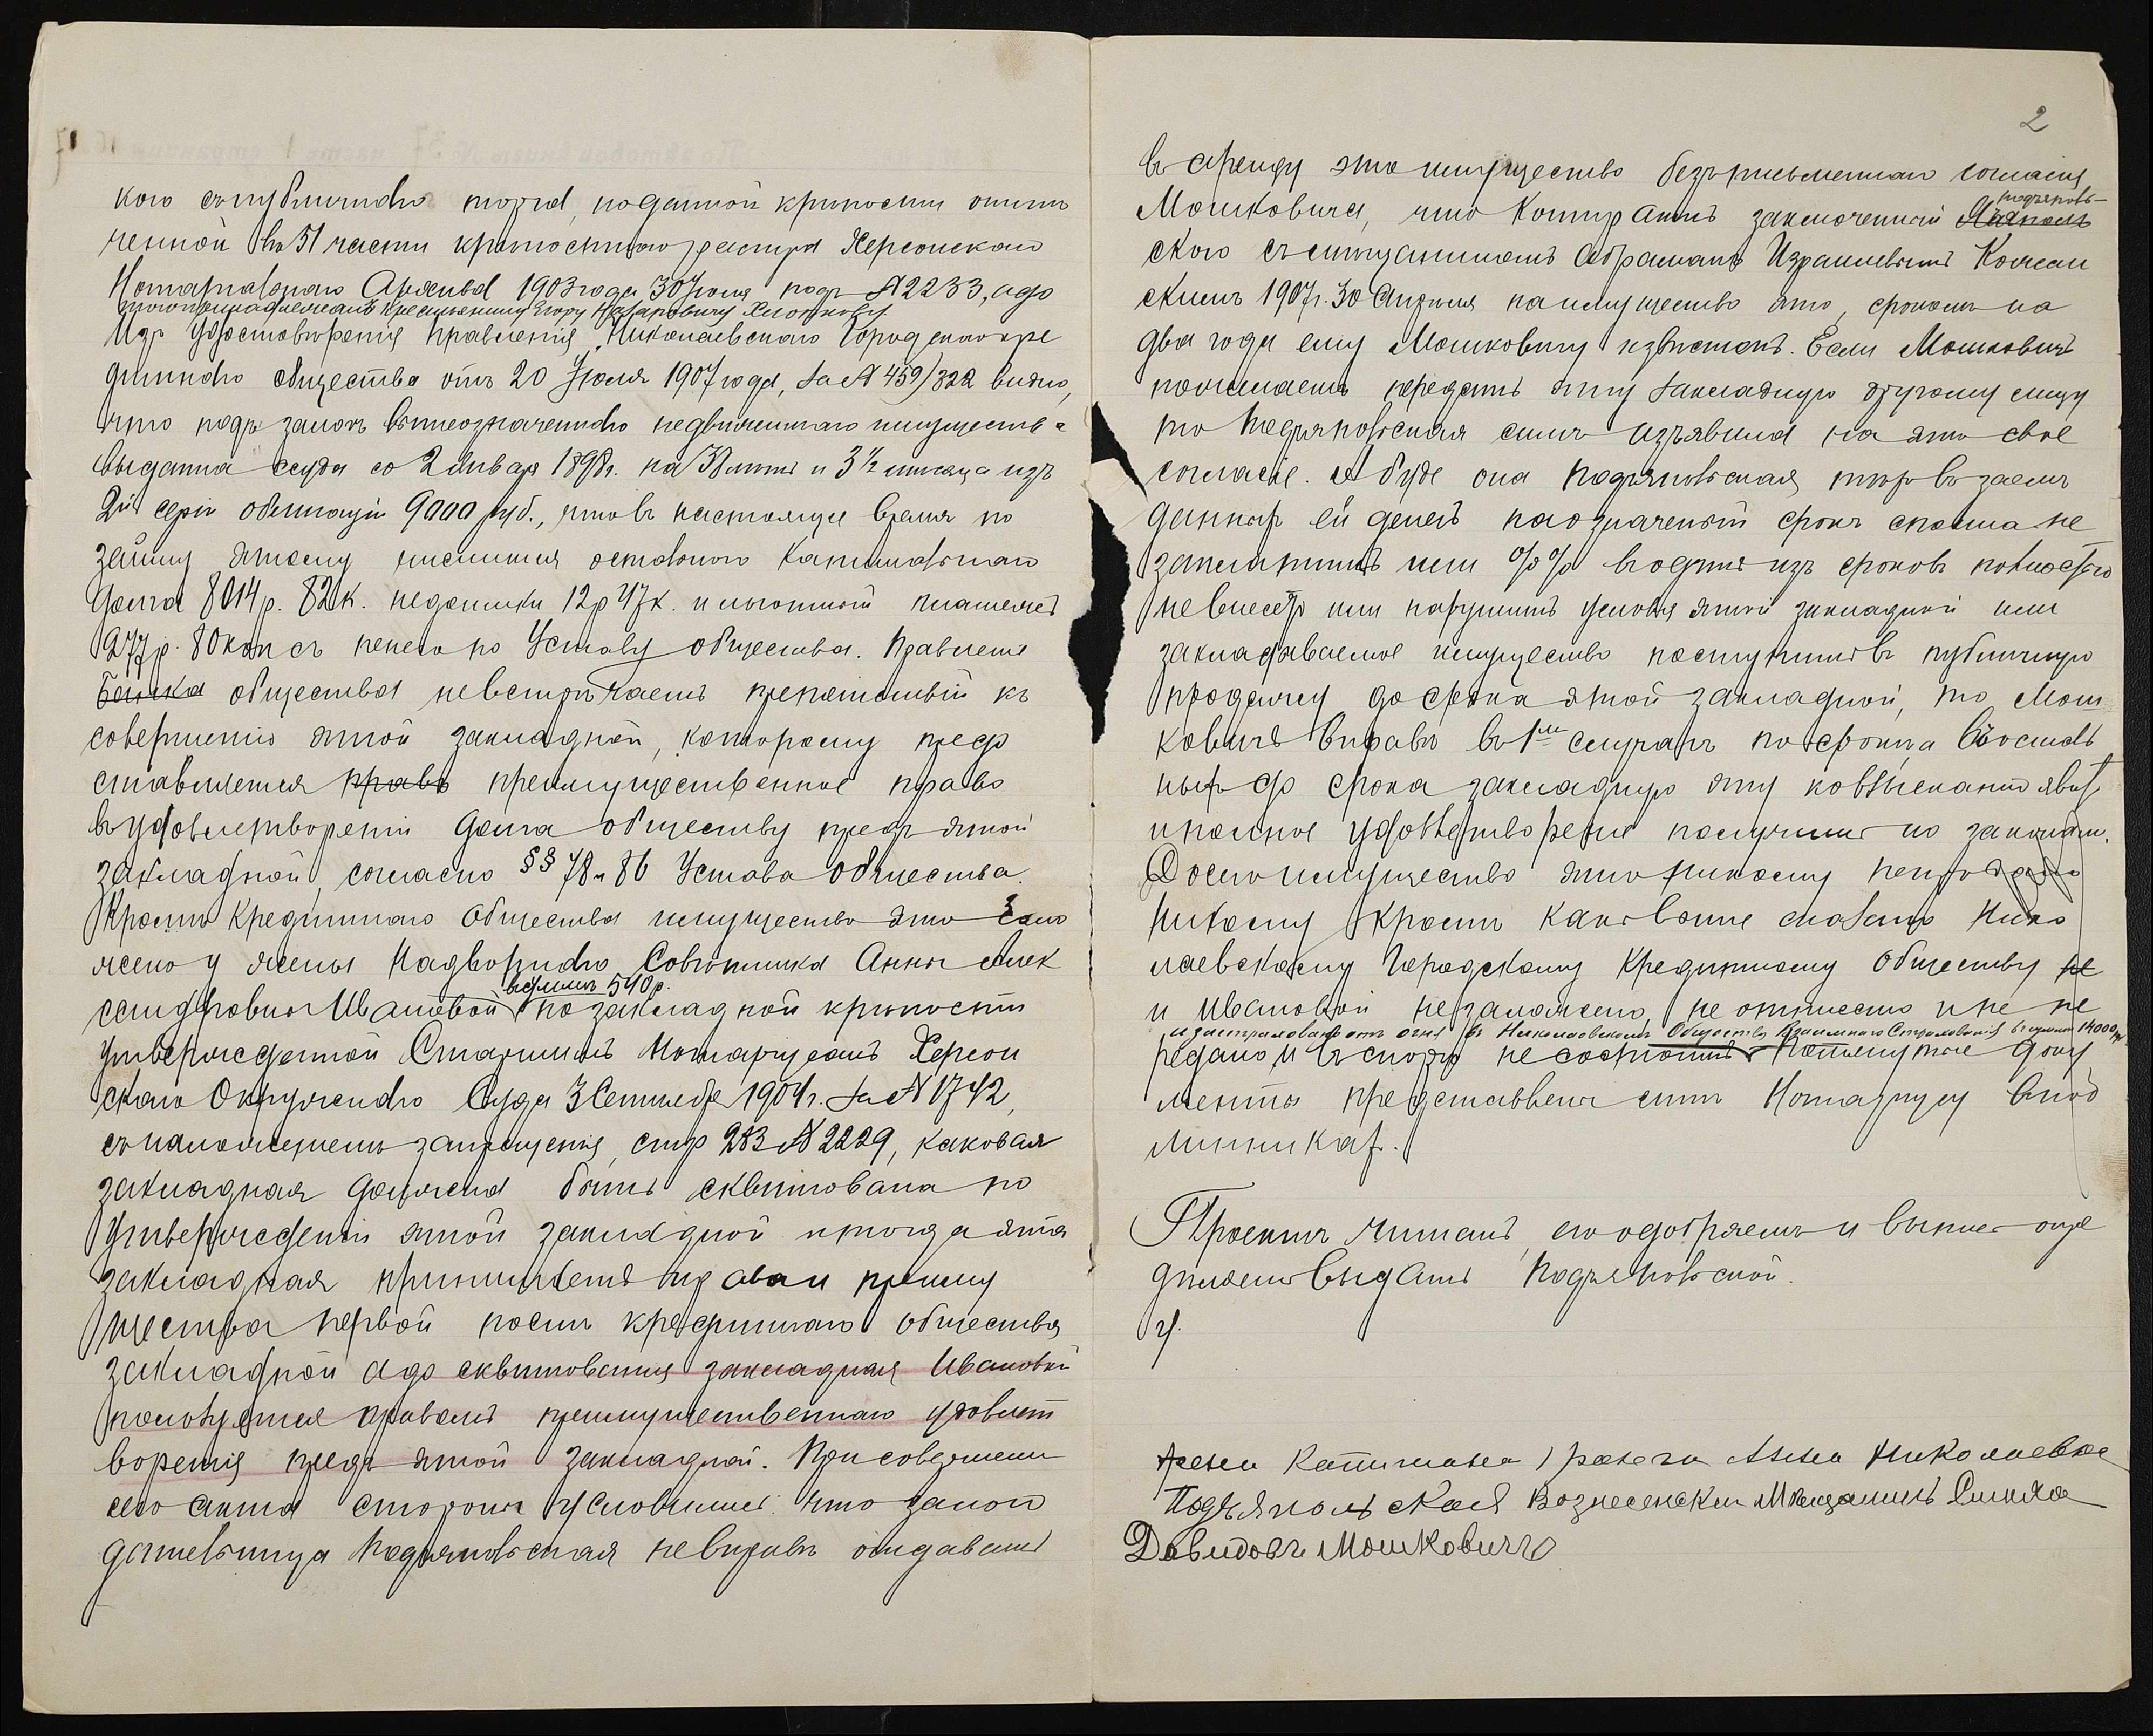 кою съ публичнаго торга, по данной крѣпости отмѣ
ченной въ 51 части крѣпостнаго реестра Херсонскаго
Нотаріальнаго Архива 1903 года 30 Іюня подъ № 2233, а до
того принадлежалъ крестьянину Егору Назаровичу
Изъ удостовѣренія Правленія Николаевскаго Городскаго кре
дитнаго общества отъ 20 Іюля 1907 года, за № 459/322 видно,
что подъ залогъ вышеозначеннаго недвижимаго имущества
выдана ссуда со 2 Января 1898 г. на 38 лѣтъ и 3½ мѣсяца изъ
2й серіи облигацій 9000 руб., что въ настоящее время по
займу этому числится остальнаго капитальнаго
долга 8014 р. 82 к. недоимки 12 р 47 к. и льготный платежъ
277 р. 80 коп съ пенею по Уставу общества. Правленіе
Банка общества не встрѣчаетъ препятствій къ
совершенію этой закладной, которому пред
ставляется правъ преимущественное право
въ удовлетвореніи долга обществу предъ этой
закладной, согласно §§ 78 и 86 Устава общества.
Кромѣ Кредитнаго Общества имущество это зало
жено у жены Надворнаго Совѣтника Анны Алек
въ суммѣ 540 р.
сандровны Ивановой по закладной крѣпости
утвержденной Старшимъ Нотаріусомъ Херсон
скаго Окружнаго Суда 3 Сентября 1904 г. за № 1742,
съ наложеніемъ запрещенія, стр 283 № 2229, каковая
закладная должна быть сквитована по
утвержденіи этой закладной и тогда эта
закладная принимаетъ права преиму
щества первой послѣ кредитнаго общества
закладной а до сквитованія закладная Ивановой
пользуется правомъ преимущественнаго удовлет
воренія предъ этой закладной. При совершеніи
сего акта стороны условились: что залого
дательница Подъяпольская не вправѣ отдавать
2
въ аренду это имущество безъ письменнаго согласія
Подъяполь-
Мошковича, что контрактъ заключенный Ляполь
скою съ мѣщаниномъ Абрамомъ Израилевымъ
скимъ 1907 г. 30 Апрѣля на имущество это, срокомъ на
два года ему Мошковичу извѣстенъ. Если Мошковичъ
пожелаетъ передать эту закладную другому лицу
то Подъяпольская симъ изъявила на это свое
согласіе. А буде она Подъяпольская по взаем
даннымъ ей денегъ на означенный срокъ сполна не
заплатитъ или %% въ одинъ изъ сроковъ полностью
не внесетъ или нарушитъ условія этой закладной или
закладываемое имущество поступитъ въ публичную
продажу до срока этой закладной, то Мош
ковичъ вправѣ въ 1мъ случаѣ по срокѣ, а въ осталь
ныхъ до срока закладную эту ко взысканію явить
и полное удовлетвореніе получить по законамъ.
До сего имущество это никому не продано
никому кромѣ какъ выше сказано Нико
лаевскому Городскому Кредитному Обществу не
и Ивановой не заложено, не отписано и не пе
и застраховано отъ огня въ Николаевскомъ Обществѣ Взаимнаго Страхованія въ суммѣ 14000 р.
редано, и въ спорѣ не состоитъ. Помянутые доку
менты представлены симъ Нотаріусу въ под
линникахъ.
Проектъ читанъ, его одобряемъ и выпись опре
дѣляемъ выдать Подъяпольской.
Жена Капитана 1 ранга Анна Николаевна
Подъяпольская Вознесенскій Мѣщанинъ
Давидовъ Мошковичъ